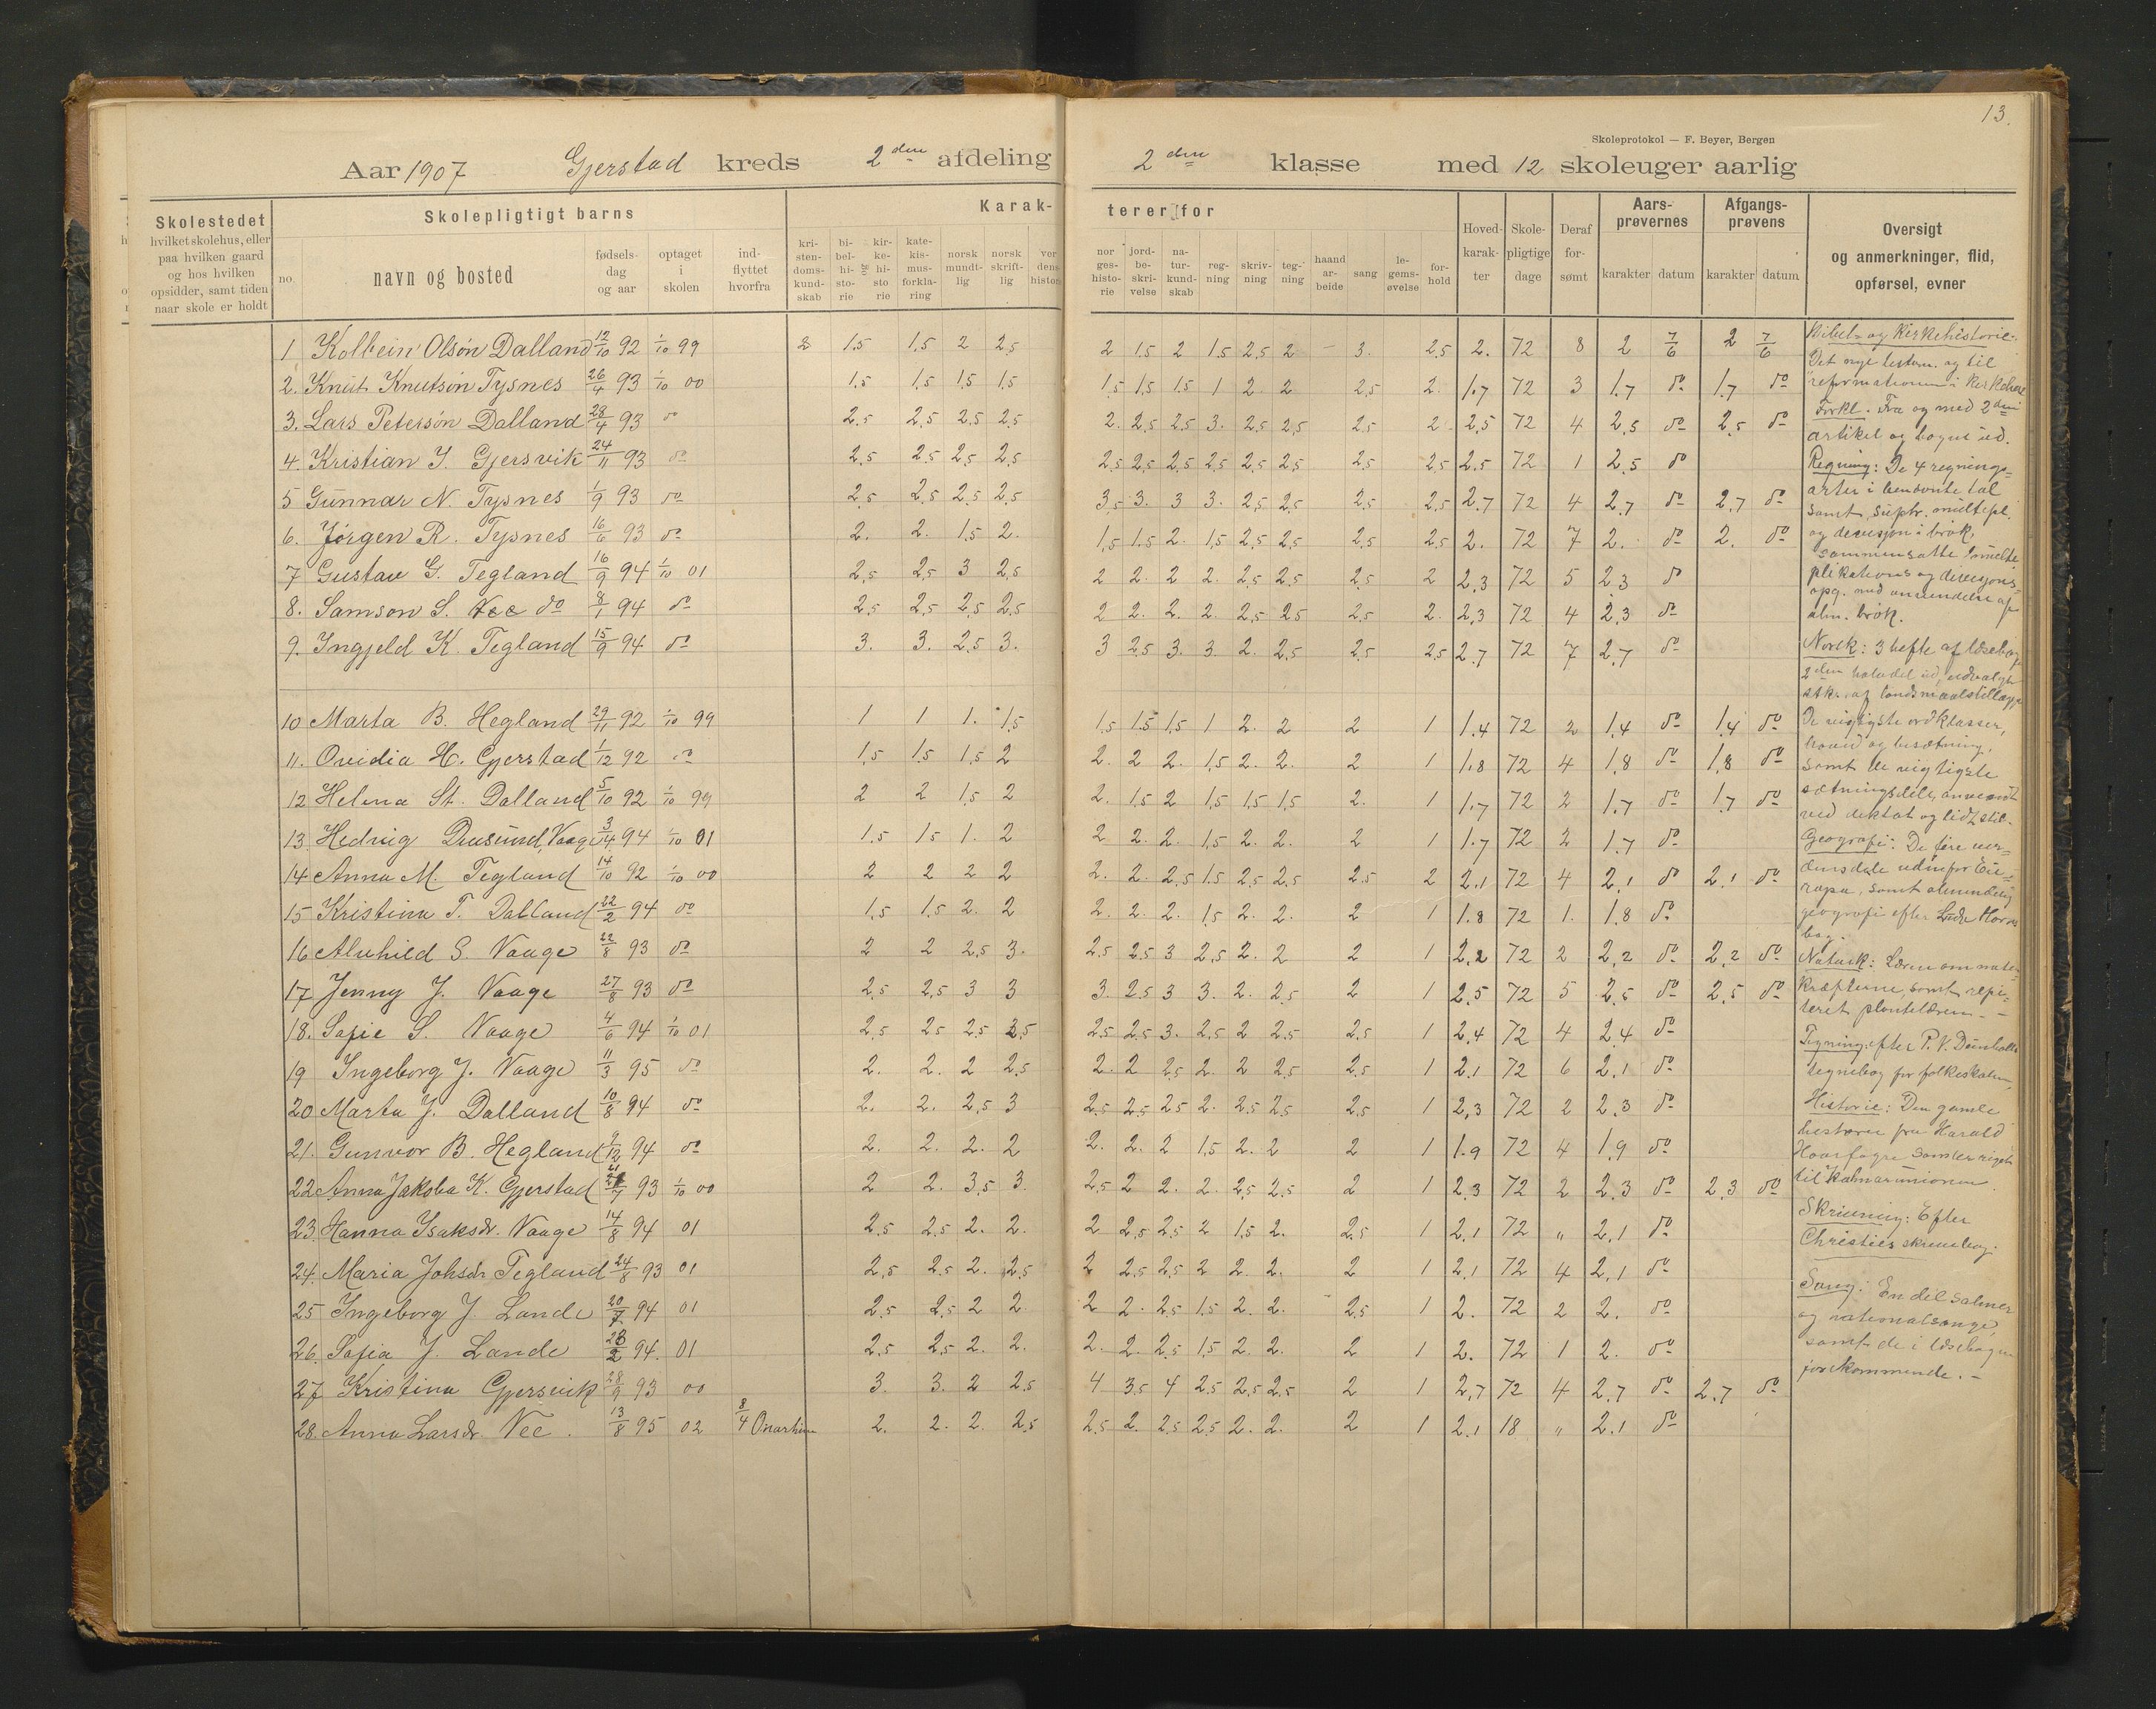 13.
Skoleprotokol — F. Beyer, Bergen
Aar 1907 Gjerstad kreds 2den afdeling 2den klasse med 12 skoleuger aarlig
Skolestedet
hvilket skolehus, eller
paa hvilken gaard
og hos hvilken
opsidder, samt tiden
naar skole er holdt
Skolepligtigt barns
no. navn og bosted fødsels-dag og aar optaget i skolen ind-flyttet hvorfra
Karak- terer for
kri-sten-doms-kund-skab bi-bel-hi-sto-rie og kir-ke-hi-sto-rie kate-kis-mus-forkla-ring norsk mundt-lig norsk skrift-lig ver dens histor
nor ges-histo-rie jord-be-skri-velse na-tur-kund-skab reg-ning skriv-ning teg-ning haand ar-beide sang le-gems-øvelse for-hold
Hoved-karak-ter Skole-pligtige dage Deraf for-sømt Aars-prøvernes karakter datum Afgangs-prøvens karakter datum
Oversigt
og anmerkninger, flid,
opførsel, evner
1 Kolbein Olsøn Dalland 12/10 92 1/10 99 2 1.5 1.5 2 2.5 2 1.5 2 1.5 2.5 2 – 3. 2.5 2. 72 8 2 7/6 2 7/6
2. Knut Knutsøn Tysnes 26/4 93 1/10 00 1.5 1.5 1.5 1.5 1.5 1.5 1.5 1 2 2 2.5 2. 1.7 72 3 1.7 do 1.7 do
3. Lars Petersøn Dalland 28/4 93 do 2.5 2.5 2.5 2.5 2. 2.5 2.5 3. 2.5 2.5 2.5 2 2.5 72 4 2.5 do 2.5 do
4. Kristian J. Gjersvik 24/11 93 do 2.5 2.5 2.5 2.5 2.5 2.5 2.5 2.5 2.5 2.5 2.5 2.5 2.5 72 1 2.5 do
5 Gunnar N. Tysnes 1/9 93 do 2.5 2.5 2.5 2.5 3.5 3. 3 3. 2.5 2.5 2.5 2.5 2.7 72 4 2.7 do 2.7 do
6. Jørgen R. Tysnes 16/6 93 do 2. 2. 1.5 2. 1.5 1.5 2. 1.5 2.5 2.5 2.5 2.5 2. 72 7 2. do 2. do
7 Gustav G. Tegland 16/9 94 1/10 01 2.5 2.5 3 2.5 2 2. 2 2. 2.5 2.5 2.5 2 2.3 72 5 2.3 do
8. Samson S. do 8/1 94 do 2.5 2.5 2.5 2.5 2 2. 2. 2. 2.5 2.5 2.5 2. 2.3 72 4 2.3 do
9. Ingjeld K. Tegland 15/9 94 do 3. 3. 2.5 3. 3 2.5 3. 3. 2. 2.5 2.5 2.5 2.7 72 7 2.7 do
10 Marta B. Hegland 29/11 92 1/10 99 1 1 1. 1.5 1.5 1.5 1.5 1 2. 2 2 1 1.4 72 2 1.4 do 1.4 do
11. Ovidia H. Gjerstad 1/12 92 do 1.5 1.5 1.5 2 2. 2 2. 1.5 2. 2. 2 1 1.8 72 4 1.8 do 1.8 do
12 Helena St. Dalland 5/10 92 1/10 99 2 2 1.5 2 2. 1.5 2 1.5 1.5 1.5 2. 1 1.7 72 2 1.7 do 1.7 do
13. Hedvig Vaage 3/4 94 1/10 01 1.5 1.5 1. 2 2 2. 2. 1.5 2. 2. 2 1 1.7 72 2 1.7 do
14 Anna M. Tegland 14/10 92 1/10 00 2 2 2 2 2. 2. 2.5 1.5 2.5 2.5 2.5 2 2.1 72 4 2.1 do 2.1 do
15 Kristina T. Dalland 22/2 94 do 1.5 1.5 2. 2 2. 2. 2. 1.5 2. 2. 2 1 1.8 72 1. 1.8 do
16 Alvhild S. Vaage 22/8 93 do 2 2 2.5 3. 2.5 2.5 3 2.5 2. 2 2 1 2.2 72 2 2.2 do 2.2 do
17 Jenny J. Vaage 27/8 93 do 2.5 2.5 3 3 3. 2.5 3 3. 2. 2.5 2 1 2.5 72 5 2.5 do 2.5 do
18. Sofie S. Vaage 4/6 94 1/10 01 2.5 2.5 2.5 2.5 2.5 2.5 3. 2.5 2 2.5 2.5 1 2.4 72 4 2.4 do
19 Ingeborg J. Vaage 11/3 95 do 2. 2. 2 2.5 2. 2 2.5 2. 2 2.5 2.5 1 2.1 72 6 2.1 do
20 Marta J. Dalland 10/8 94 do 2. 2. 2.5 3 2.5 2.5 2.5 2. 2.5 2.5 2.5 1 2.3 72 2 2.3 do
21. Gunvor B. Hegland 9/12 94 do 2. 2. 2. 2 2. 2. 2 1.5 2. 2 2 1 1.9 72 4 1.9 do
22 Anna Jakoba K. Gjerstad 21/7 93 1/10 00 2 2. 3.5 3. 2.5 2 2. 2. 2.5 2.5 2 1 2.3 72 2 2.3 do 2.3 do
23. Hanna Isaksdr. Vaage 14/8 94 01 2.5 2.5 2. 2. 2 2.5 2.5 2 1.5 2. 2.5 1 2.1 72 " 2.1 do
24. Maria Johsdr Tegland 24/8 93 01 2.5 2.5 2. 2.5 2 2.5 2.5 2 2. 2. 2 1 2.1 72 4 2.1 do
25 Ingeborg J. Lande 20/7 94 01 2.5 2.5 2 2. 2 2. 2.5 1.5 2. 2. 2.5 1 2. 72 2 2. do
26. Sofia J. Lande 28/2 94. 01 2.5 2.5 2. 2. 2. 2. 2.5 1.5 2. 2. 2 1 2. 72 1 2. do
27 Kristina Gjersvik 28/9 93 00 3. 3. 2 2.5 4 3.5 4 2.5 2.5 2.5 2 1 2.7 72 4 2.7 do 2.7 do
28. Anna Larsdr. Vee. 13/8 95 02 8/4 Onarhim 2. 2. 2. 2.5 2.5 2. 2.5 2.5 2. 2. 2 1 2.1 18 " 2.1 do
Bibel- og Kirkehistorie:
Det nye testam. og til
reformationen i kirkehist
Forkl. Fra og med 2den
artikel og bogen ud.
Regning: De 4 regnings-
arter i benævnte tal
samt subtr. multipl.
og division i brøk,
sammensatte multi
plikations og divisjons
opg. med anvendelse af
alm. brøk.
Norsk: 3 hefte af læsebog
2den halvdel ud, udvalgte
stkr. af landsmaalstillægget
De vigtigste ordklasser,
hoved og bisætning,
samt de vigtigste
sætningsdele, anvendt
ved diktat og lidt stil.
Geografi: De fire ver-
densdele udenfor Eu-
ropa, samt almindelig
geografi efter Horns
bog.
Naturk: Læren om natur
kræfterne, samt repi-
teret plantelæren. –
Tegning: efter P. V.
tegnebog for folkeskolen,
Historie: Den gamle
historie fra Harald
Haarfagre samler riget
til Kalmarunionen.
Skrivning: Efter
Christies skrivebog.
Sang: En del salmer
og nationalsange,
samt de i læsebogen
forekommende. –